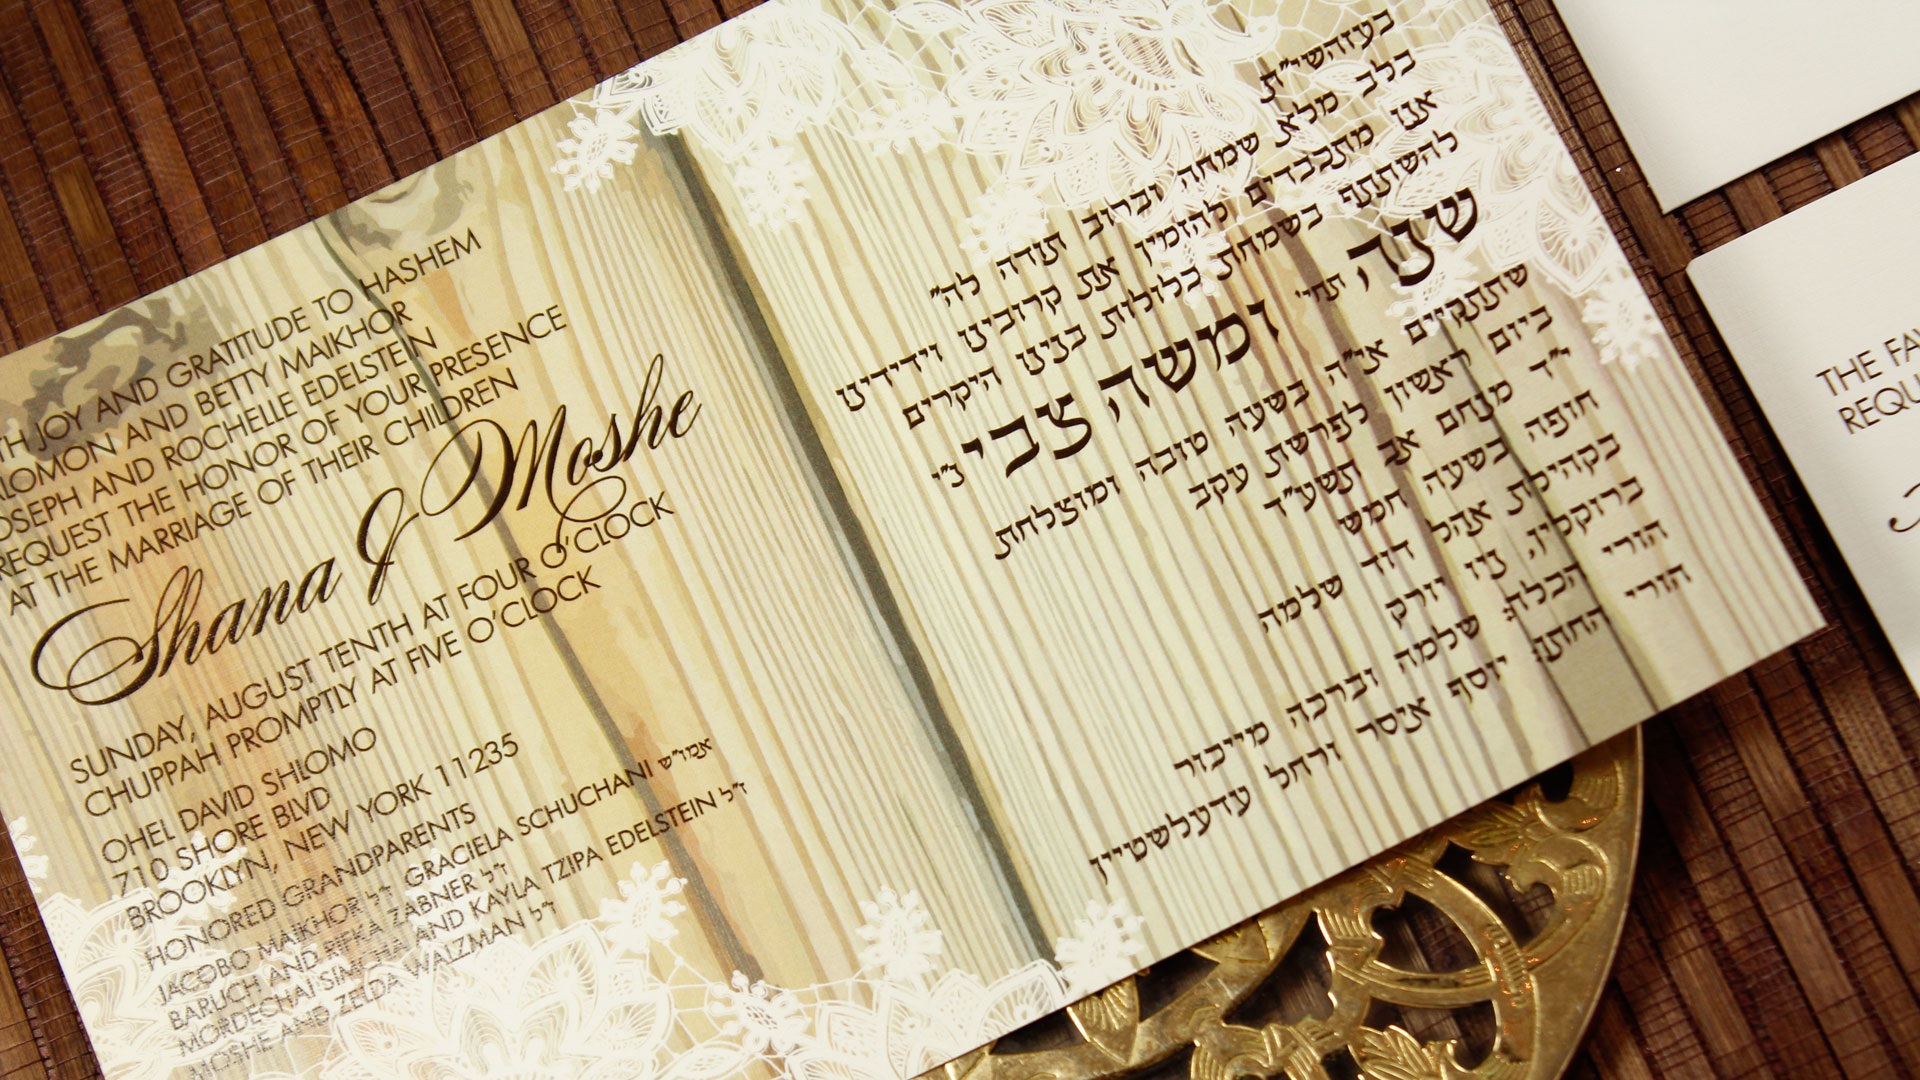 JOY AND GRATITUDE TO HASHEM
AND BETTY MAIKHOR
AND ROCHELLE EDELSTEIN
REQUEST THE HONOR OF YOUR PRESENCE
AT THE MARRIAGE OF THEIR CHILDREN
Shana & Moshe
SUNDAY, AUGUST TENTH AT FOUR O'CLOCK
CHUPPAH PROMPTLY AT FIVE O'CLOCK
OHEL DAVID SHLOMO
710 SHORE BLVD
BROOKLYN, NEW YORK 11235
HONORED GRANDPARENTS
JACOBO MAIKHOR ז"ל GRACIELA SCHUCHANI אמו"ש
BARUCH AND RIFKA ZABNER ז"ל
MORDECHAI SIMCHA AND KAYLA TZIPA EDELSTEIN ז"ל
MOSHE AND ZELDA WAIZMAN ז"ל
בעזהשי"ת
בלב מלא שמחה וברוב תודה לה'
אנו מתכבדים להזמין את קרובינו וידידינו
להשתתף בשמחת כלולות בנינו היקרים
שנה תחי' ומשה צבי ני"
שתתקיים אי"ה בשעה טובה ומוצלחת
ביום ראשון לפרשת עקב
י"ד מנחם אב תשע"ד
חופה בשעה חמש
בקהילת אהל דוד שלמה
ברוקלין, ניו יורק
הורי הכלה: שלמה וברכה מייכור
הורי החתן: יוסף איסר ורחל עדעלשטיין
THE